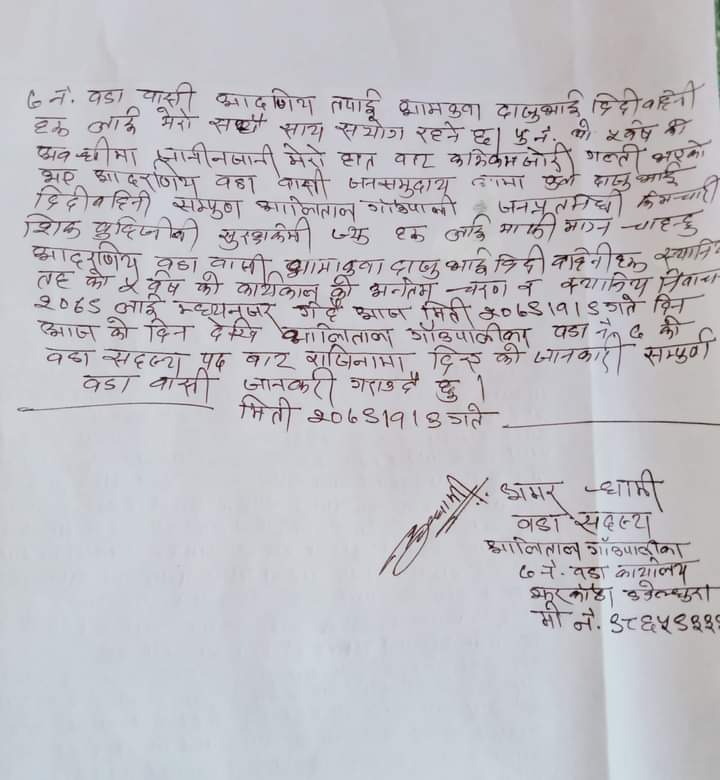 ७ नं. वडा वासी आदणिय तपाई आमाबुवा दाजुभाई दिदीवहिनी
हरु लाई मेरो सधै साथ सयोग रहने छ। ५ वर्ष की
अवधीमा जानीनजानी मेरो हात वाट कमिकमजोरी गल्ती भएको
भए आदरणिय वडा वासी जनसमुदाय दाजु भाई
दिदीवहिनी सम्पुर्ण आलिताल गाँउपाली जनप्रतिनिधी कर्मचारी
शिक्षक वुद्दिजीवी सुरक्षाकर्मी ज्यु हरु लाई माफी माग्न चाहन्छु
आदरणिय वडा वासी आमाबुवा दाजु भाई दिदी वहिनी हरु स्थानिय
तह को ५ वर्ष को कार्यकाल को अन्तिम चरण र स्थानिय निर्वाचन
२०७९ लाई मध्यनजर गर्दै आज मिती २०७९।१।९ गते दिन
आज को दिन देखि आलिताल गाँउपालीका वडा नं. ७ को
वडा सदस्य पद बाट राजिनामा दिएको जानकारी सम्पुर्ण
वडा वासी जानकारी गराउदै छु।
मिती २०७९।१।९ गते
अमर धामी
वडा सदस्य
आलिताल गाँउपालीका
७ नं. वडा कार्यालय
डडेल्धुरा
मो नं.